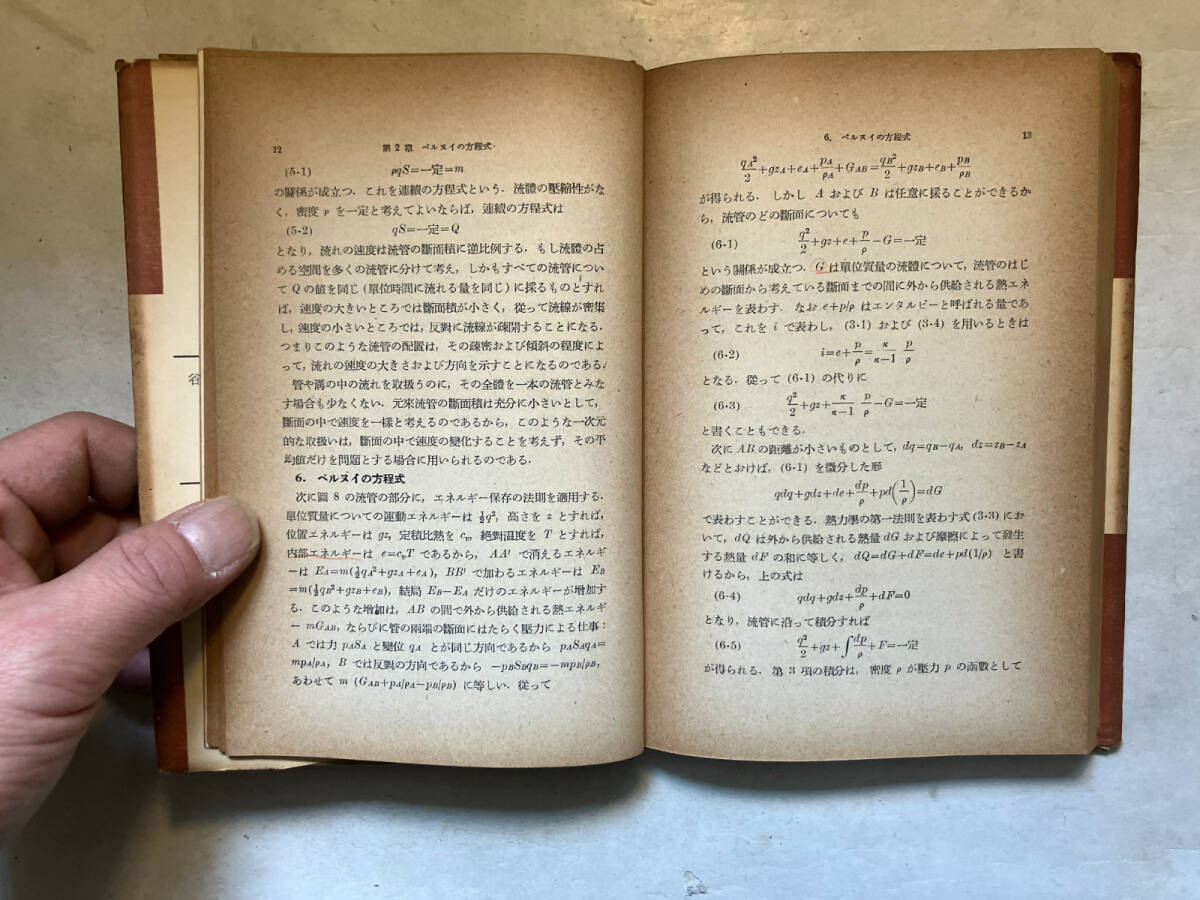 12 第2章 ベルヌイの方程式
(5・1) ρqS=一定=m
の關係が成立つ．これを連續の方程式という．流體の壓縮性がな
く，密度 ρ を一定と考えてよいならば，連續の方程式は
(5・2) qS=一定=Q
となり，流れの速度は流管の斷面積に逆比例する．もし流體の占
める空間を多くの流管に分けて考え，しかもすべての流管につい
て Q の値を同じ (單位時間に流れる量を同じ) に採るものとすれ
ば，速度の大きいところでは斷面積が小さく，從って流線が密集
し，速度の小さいところでは，反對に流線が疎開することになる．
つまりこのような流管の配置は，その疎密および傾斜の程度によ
って，流れの速度の大きさおよび方向を示すことになるのである．
管や溝の中の流れを取扱うのに，その全體を一本の流管とみな
す場合も少なくない．元來流管の斷面積は充分に小さいとして，
斷面の中で速度を一樣と考えるのであるから，このような一次元
的な取扱いは，斷面の中で速度の變化することを考えず，その平
均値だけを問題とする場合に用いられるのである．
6. ベルヌイの方程式
次に圖 8 の流管の部分に，エネルギー保存の法則を適用する．
單位質量についての運動エネルギーは ½q²，高さを z とすれば，
位置エネルギーは gz，定積比熱を cᵥ，絶對温度を T とすれば，
内部エネルギーは e=cᵥT であるから，AA′ で消えるエネルギ
ーは E_A=m(½q_A²+gz_A+e_A)，BB′ で加わるエネルギーは E_B
=m(½q_B²+gz_B+e_B)，結局 E_B−E_A だけのエネルギーが増加す
る．このような増加は，AB の間で外から供給される熱エネルギ
ー mG_AB，ならびに管の兩端の斷面にはたらく壓力による仕事：
A では力 p_AS_A と變位 q_A とが同じ方向であるから p_AS_Aq_A=
mp_A/ρ_A，B では反對の方向であるから −p_BS_Bq_B=−mp_B/ρ_B，
あわせて m (G_AB+p_A/ρ_A−p_B/ρ_B) に等しい．從って
6. ベルヌイの方程式 13
q_A²/2+gz_A+e_A+p_A/ρ_A+G_AB=q_B²/2+gz_B+e_B+p_B/ρ_B
が得られる．しかし A および B は任意に採ることができるか
ら，流管のどの斷面についても
(6・1) q²/2+gz+e+p/ρ−G=一定
という關係が成立つ．G は單位質量の流體について，流管のはじ
めの斷面から考えている斷面までの間に外から供給される熱エネ
ルギーを表わす．なお e+p/ρ はエンタルピーと呼ばれる量であ
って，これを i で表わし，(3・1) および (3・4) を用いるときは
(6・2) i=e+p/ρ=κ/(κ−1) p/ρ
となる．從って (6・1) の代りに
(6・3) q²/2+gz+κ/(κ−1) p/ρ−G=一定
と書くこともできる．
次に AB の距離が小さいものとして，dq=q_B−q_A, dz=z_B−z_A
などとおけば，(6・1) を微分した形
qdq+gdz+de+dp/ρ+pd(1/ρ)=dG
で表わすことができる．熱力學の第一法則を表わす式 (3・3) にお
いて，dQ は外から供給される熱量 dG および摩擦によって發生
する熱量 dF の和に等しく，dQ=dG+dF=de+pd(1/ρ) と書
けるから，上の式は
(6・4) qdq+gdz+dp/ρ+dF=0
となり，流管に沿って積分すれば
(6・5) q²/2+gz+∫dp/ρ+F=一定
が得られる．第 3 項の積分は，密度 ρ が壓力 p の函數として
谷